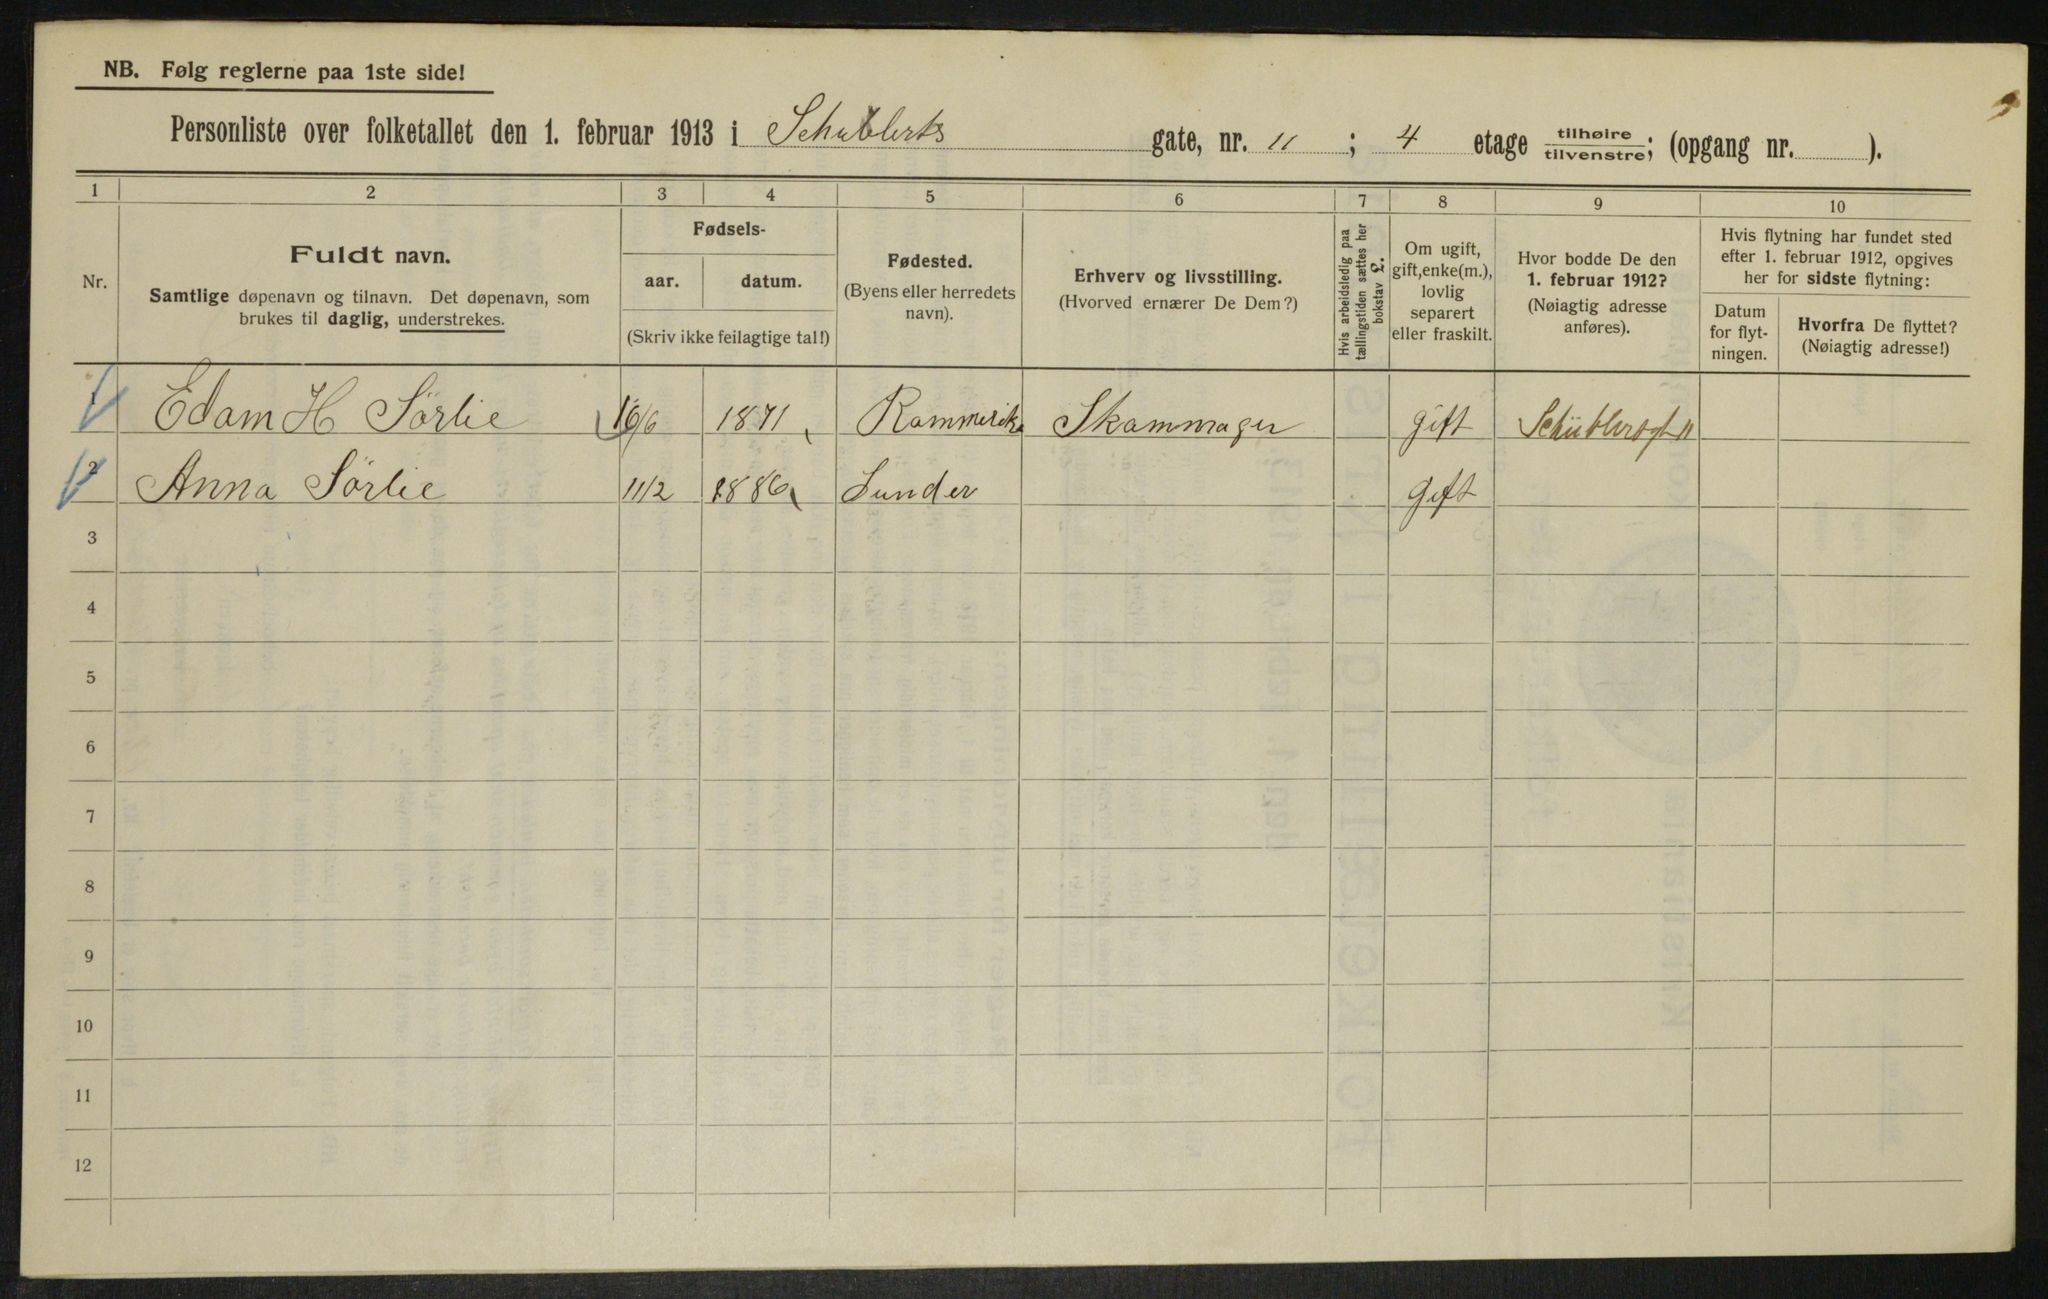 NB. Følg reglerne paa 1ste side!
Personliste over folketallet den 1. februar 1913 i Schublerts gate, nr. 11 ; 4 etage tilhøire tilvenstre; (opgang nr. ).
1 2 3 4 5 6 7 8 9 10
Nr.
Fuldt navn.
Samtlige døpenavn og tilnavn. Det døpenavn, som
brukes til daglig, understrekes.
Fødsels-
aar. datum.
(Skriv ikke feilagtige tal!)
Fødested.
(Byens eller herredets
navn).
Erhverv og livsstilling.
(Hvorved ernærer De Dem?)
Hvis arbeidsledig paa
tællingstiden sættes her
bokstav L.
Om ugift,
gift,enke(m.),
lovlig
separert
eller fraskilt.
Hvor bodde De den
1. februar 1912?
(Nøiagtig adresse
anføres).
Hvis flytning har fundet sted
efter 1. februar 1912, opgives
her for sidste flytning:
Datum
for flyt-
ningen.
Hvorfra De flyttet?
(Nøiagtig adresse!)
1 Edam H Sörlie 16/6 1871 Rommerike Skommager gift Schüblersgt 11
2 Anna Sörlie 11/2 1886 Sunder gift
3
4
5
6
7
8
9
10
11
12